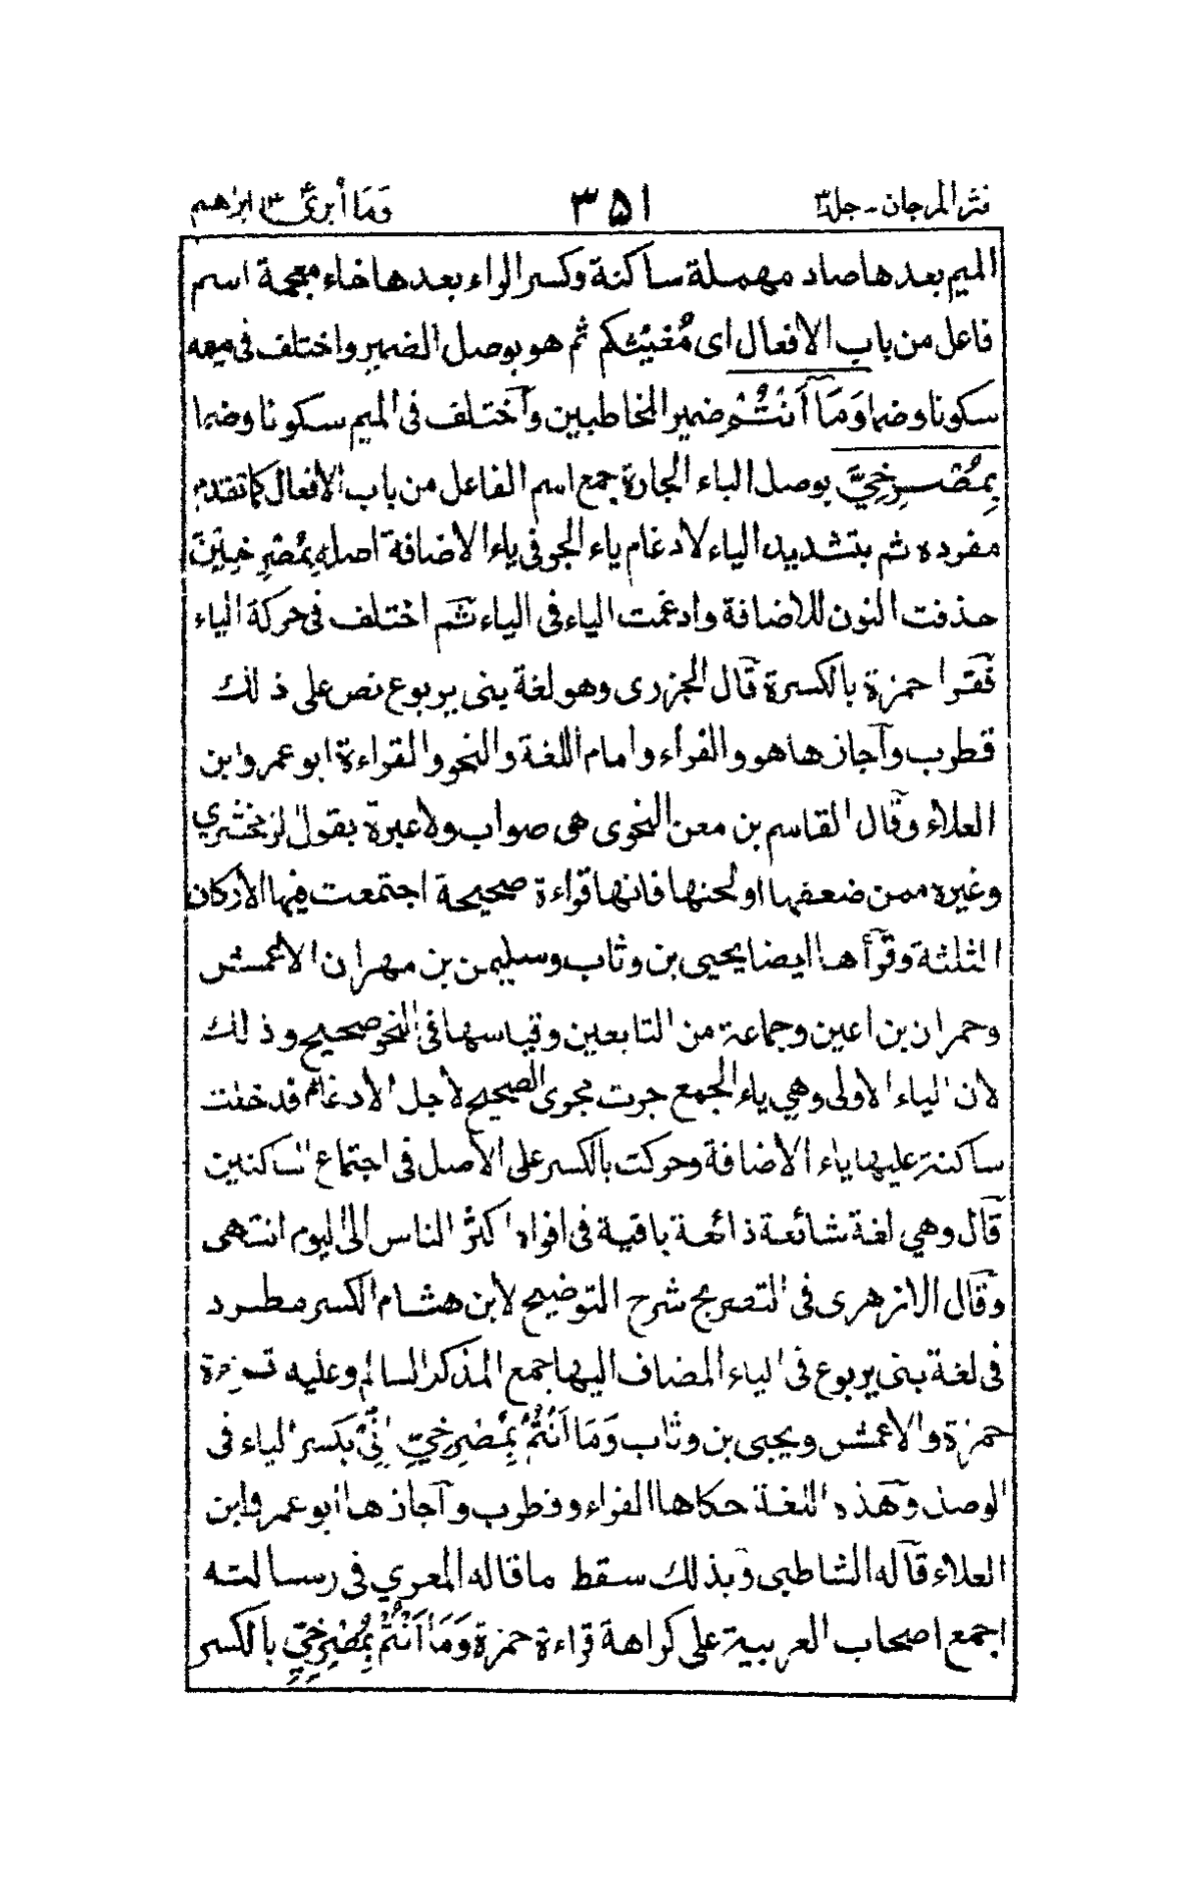 نثر المرجان - جلد ٣ ٣٥١ وَمَا أُبَرِّئُ ١٣ ابراهيم
الميم بعدها صاد مهملة ساكنة وكسر الراء بعدها خاء معجمة اسم
فاعل من باب الافعال اى مُغيْثكم ثم هو بوصل الضمير واختلف فى ميمه
سكونا وضما وَمَآ أَنْتُمْ ضمير المخاطبين وآختلف فى الميم سكونا وضما
بِمُصْرِخِيَّ بوصل الباء الجارة جمع اسم الفاعل من باب الافعال كما تقدم
مفرده ثم بتشديد الياء لادغام ياء الجر فى ياء الاضافة اصله بِمُصْرِخِيْنَ
حذفت النون للاضافة وادغمت الياء فى الياء ثم اختلف فى حركة الياء
فقرا حمزة بالكسرة قال الجزرى وهو لغة بنى يربوع نص على ذلك
قطرب وآجازها هو والفراء وامام اللغة والنحو والقراءة ابو عمرو بن
العلاء وقال القاسم بن معن النحوى هى صواب ولا عبرة بقول الزمخشري
وغيره ممن ضعفها او لحنها فانها قراءة صحيحة اجتمعت فيها الاركان
الثلثة وقرأها ايضا يحيى بن وثاب وسليمن بن مهران الاعمش
وحمران بن اعين وجماعة من التابعين وقياسها فى النحو صحيح وذلك
لان الياء الاولى وهي ياء الجمع جرت مجرى الصحيح لاجل الادغام فدخلت
ساكنة عليها ياء الاضافة وحركت بالكسر على الاصل فى اجتماع الساكنين
قال وهي لغة شائعة ذائعة باقية فى افواه اكثر الناس الى اليوم انتهى
وقال الازهرى فى التصريح شرح التوضيح لابن هشام الكسر مطرد
فى لغة بنى يربوع فى الياء المضاف اليها جمع المذكر السالم وعليه قراءة
حمزة والاعمش ويحيى بن وثاب وَمَا اَنْتُمْ بِمُصْرِخِيِّ اِنِّيْ بكسر الياء فى
الوصل وهذه اللغة حكاها الفراء وقطرب وآجازها ابو عمرو بن
العلاء قاله الشاطبى وبذلك سقط ما قاله المعري فى رسالته
اجمع اصحاب العربية على كراهة قراءة حمزة وَمَا اَنْتُمْ بِمُصْرِخِيِّ بالكسر